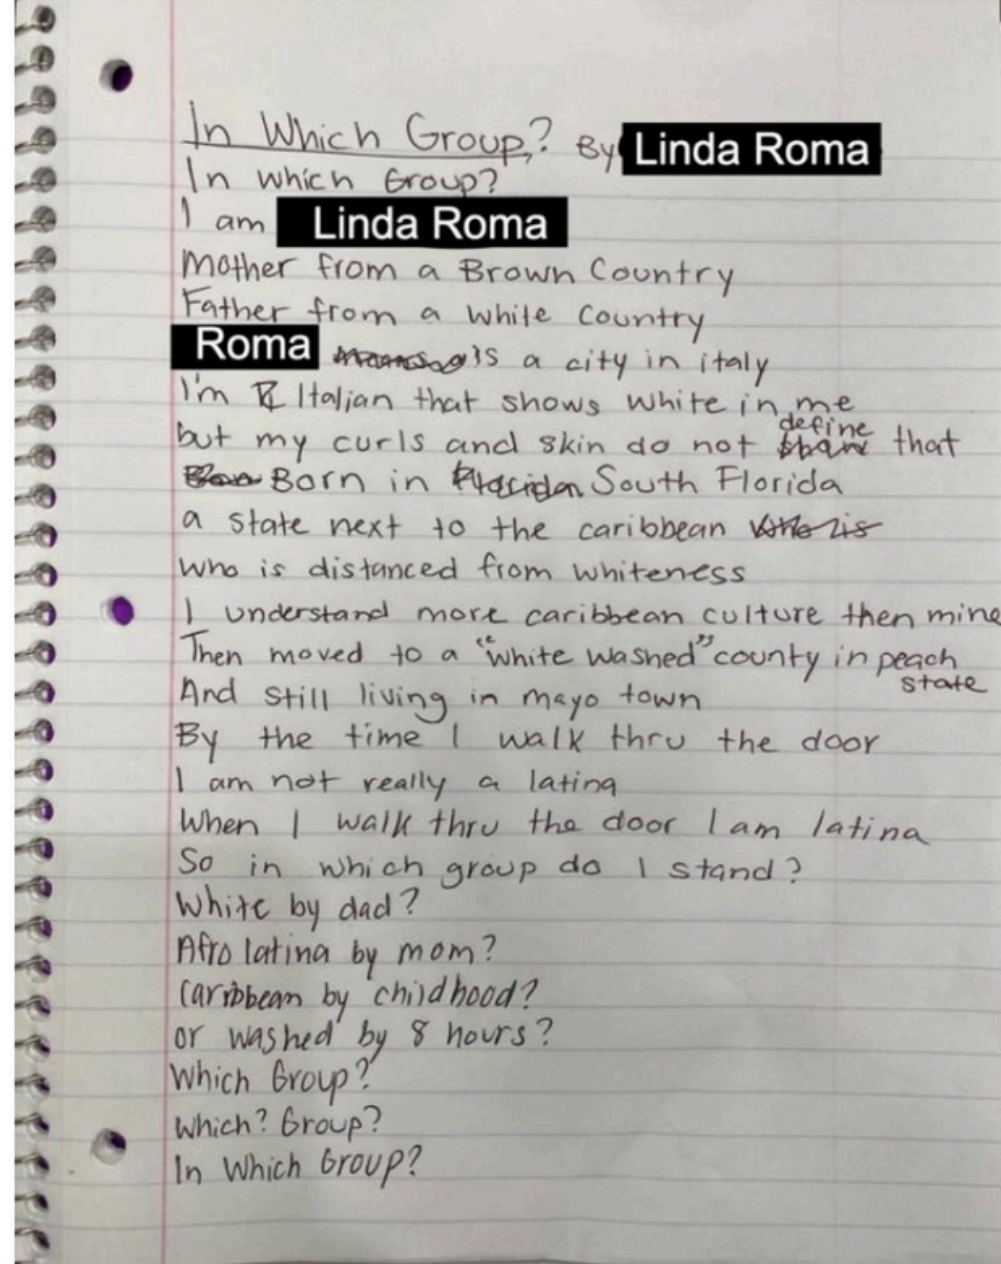 In Which Group? By Linda Roma
In which Group?
I am Linda Roma
Mother from a Brown Country
Father from a White Country
Roma is a city in italy
I'm Italian that shows white in me
but my curls and skin do not define that
Born in South Florida
a state next to the caribbean
who is distanced from whiteness
I understand more caribbean culture then mine
Then moved to a "white washed" county in peach state
And still living in mayo town
By the time I walk thru the door
I am not really a latina
When I walk thru the door I am latina
So in which group do I stand?
White by dad?
Afro latina by mom?
Caribbean by childhood?
or washed by 8 hours?
Which Group?
Which? Group?
In Which Group?